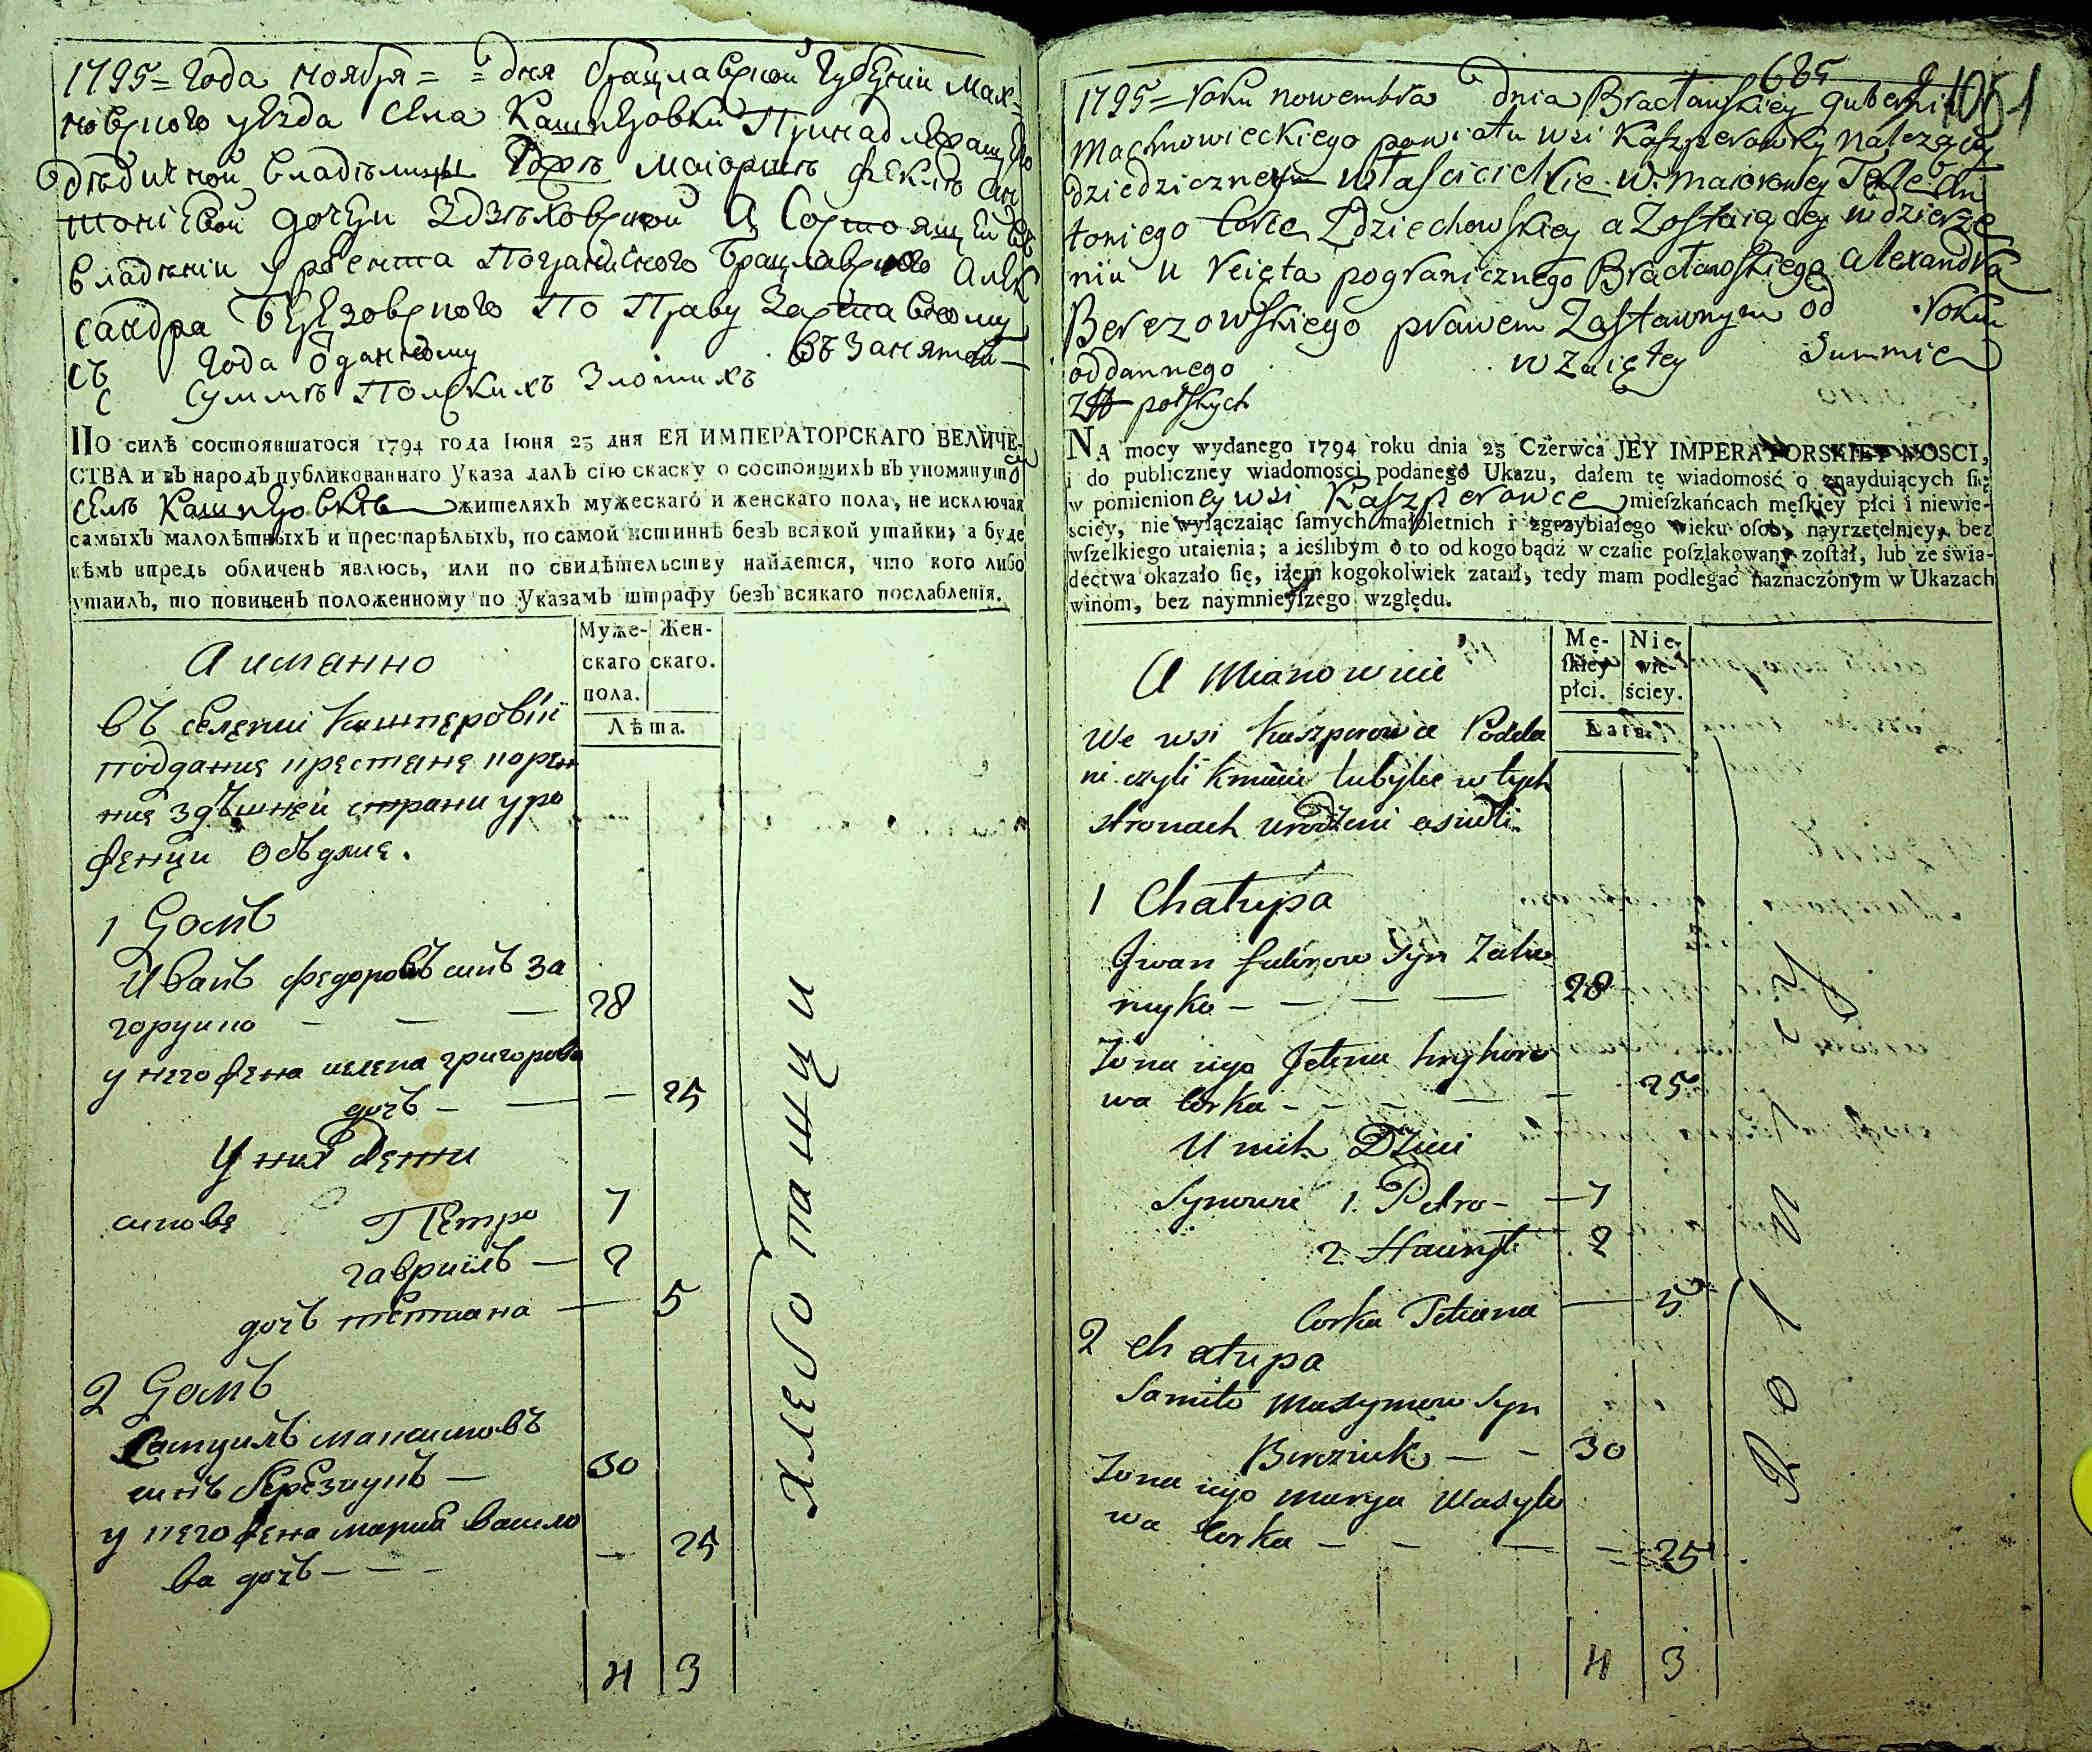 1795 = года ноября = = дня брацлавской губернии Мах=
новского уезда села Кашперовки Принадлежащего
дѣдичной владѣлицы Госпѣ маіоршѣ феклѣ Ан
тоніевой дочери Здзѣховской А Состоящей въ
владѣніи у реента Пограничного Брацлавского Алек
сандра Березовского По Праву заставному
съ года отданному въ занятой
суммѣ Полскихъ Злотихъ
По силѣ состоявшагося 1794 года Іюня 23 дня ЕЯ ИМПЕРАТОРСКАГО ВЕЛИЧЕ-
СТВА и въ народъ публикованнаго Указа далъ сію скаску о состоящихъ въ упомянутомъ
селѣ Кашперовкѣ жителяхъ мужескаго и женскаго пола, не исключая
самыхъ малолѣтныхъ и престарѣлыхъ, по самой истиннѣ безъ всякой утайки; а буде
кѣмъ впредь обличенъ явлюсь, или по свидѣтельству найдется, что кого либо
утаилъ, то повиненъ положенному по Указамъ штрафу безъ всякаго послабленія.
А имянно
Муже- Жен-
скаго скаго.
пола.
Лѣта.
въ селении Кашперовки
поддание крестяне корен
ние здѣшней страни уро
женци Осѣдлие.
1 Домъ
Иванъ федоровъ синъ За
горуйко — — — 28
у него жена иелена григорова
дочъ — — — 25
У них Детти
синове Петро 7
гавриілъ — 2
дочъ тетиана — 5
2 Домъ
Самуилъ макиимовъ
синъ березюкъ — 30
у него жена мария васило
ва дочъ — — — — 25
4 3
хлебопашци
685
1051
1795 = roku nowembra dnia Bracławskiey gubernii
Machnowieckiego powiatu wsi Kaszperowky należącey
dziedziczney właścicielkie W. maiorowey Tekle An
toniego Corce Zdziechowskiey a Zostaiącey w dzierże
niu u reięta pogranicznego Bracławskiego alexandra
Berezowskiego prawem Zastawnym od roku
oddannego w zaiętey Summie
Zł polskych
NA mocy wydanego 1794 roku dnia 23 Czerwca JEY IMPERATORSKIEY MOSCI,
i do publiczney wiadomości podanego Ukazu, dałem tę wiadomość o znayduiących się
w pomienioney wsi Kaszperowce mieszkańcach męskiey płci i niewie-
ściey, nie wyłączaiąc samych małoletnich i zgrzybiałego wieku osob, nayrzetelniey, bez
wszelkiego utaienia; a ieślibym o to od kogo bądź w czasie poszlakowany został, lub ze świa-
dectwa okazało się, iżem kogokolwiek zataił, tedy mam podlegać naznaczonym w Ukazach
winom, bez naymnieyszego względu.
A Mianowicie
Mę- Nie-
skiey wie-
płci. ściey.
Lata.
We wsi Kaszperowce Podda
ni czyli kmiecie tubylce w tych
stronach urodzeni osiedli.
1 Chałupa
Jwan fedorow Syn Zaho
ruyko — — — — 28
Zona iego Jelena hryhoro
wa Corka — — — — — 25
U nich Dzieci
Synowie 1. Petro — — 7
2. Hawryło 2
Corka Tetiana — 5
2 Chałupa
Samiło Maxymow Syn
Bereziuk — — 30
Zona iego Marya Wasylo
wa Corka — — — — 25
4 3
Rolnicy